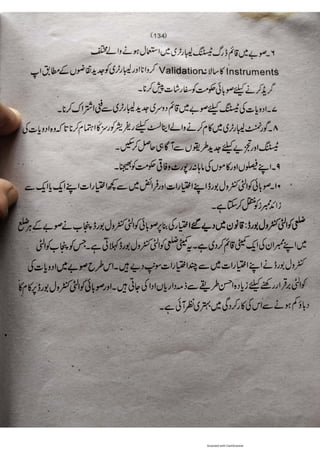 (134)
۶۔ صوبے میں قائم ڈرگ ٹیسٹنگ لیبارٹری میں استعمال ہونے والے مختلف
Instruments کا سالانہ Validation کروانا اور لیبارٹری کو جدید تقاضوں کے مطابق اپ
گریڈ کرنے کیلئے صوبائی حکومت کو سفارشات پیش کرنا۔
۷۔ ادویات کی ٹیسٹنگ کیلئے صوبے میں قائم دوسری جدید لیبارٹری سے فنی اشتراک کرنا۔
۸۔ گورنمنٹ لیبارٹری میں کام کرنے والے اینالسٹ کیلئے ریفریشر کورسز کا اہتمام کرنا تاکہ وہ ادویات کی
ٹیسٹنگ اور تجزیے کیلئے جدید طریقوں سے آگاہی حاصل کر سکیں۔
۹۔ اپنے فیصلوں اور کاموں کی ماہانہ رپورٹ وفاقی حکومت کو بھیجنا۔
۱۰۔ صوبائی کوالٹی کنٹرول بورڈ اپنے اختیارات اور فرائض میں سے کچھ اختیارات اپنے ایک یا ایک سے
زائد ممبرز کو منتقل کر سکتا ہے۔
ضلعی کوالٹی کنٹرول بورڈ: قانون میں دیے گئے اختیار کی بنا پر صوبائی کوالٹی کنٹرول بورڈ پنجاب نے صوبے کے ہر ضلع
میں اپنے ممبران کی ایک کمیٹی قائم کر دی ہے۔ یہ کمیٹی ضلعی کوالٹی کنٹرول بورڈ کہلاتی ہے۔ جس کو پنجاب کوالٹی
کنٹرول بورڈ نے اپنے اختیارات میں سے چند اختیارات سونپ دیے ہیں۔ اس طرح صوبے میں ادویات کی
کوالٹی برقرار رکھنے کیلئے زیادہ احسن طریقے سے ذمہ داریاں ادا کی جاتی ہیں۔ اور صوبائی کوالٹی کنٹرول بورڈ پر کام کا
دباؤ کم ہونے سے اس کی کارکردگی میں بہتری نظر آئی ہے۔
Scanned with CamScanner